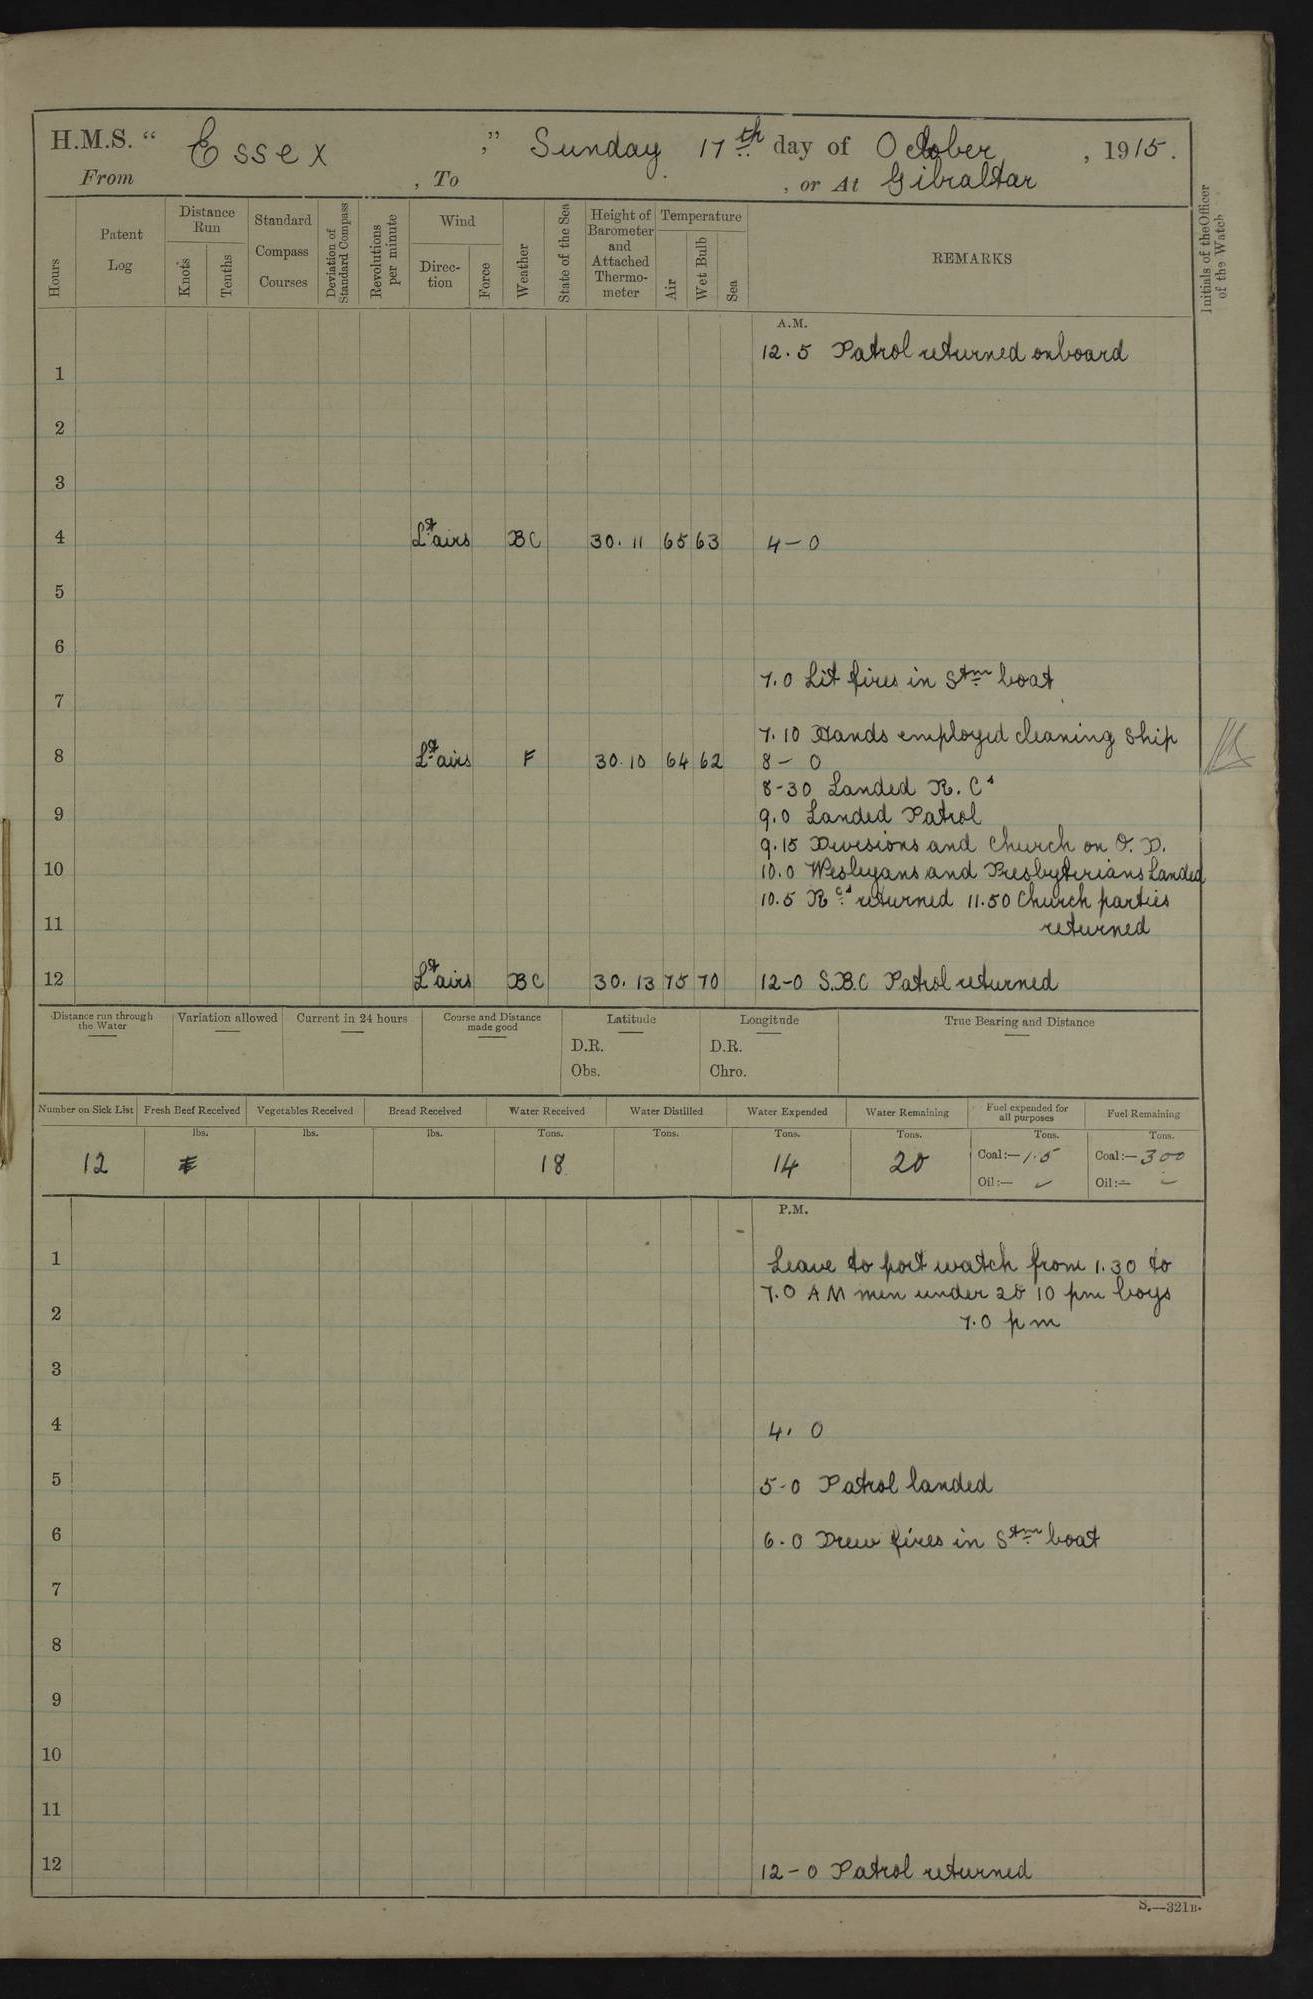 H.M.S. “ Essex ,” Sunday 17th day of October , 1915.
From , To , or At Gibraltar
Hours
Patent Log
Distance Run
Knots
Tenths
Standard Compass Courses
Deviation of Standard Compass
Revolutions per minute
Wind
Direction
Force
Weather
State of the Sea
Height of Barometer and Attached Thermometer
Temperature
Air
Wet Bulb
Sea
REMARKS
Initials of the Officer of the Watch
A.M.
12.5 Patrol returned onboard
1
2
3
4 Lt airs BC 30.11 65 63 4-0
5
6
7.0 Lit fires in Stm boat
7
7.10 Hands employed cleaning Ship
8 Lt airs F 30.10 64 62 8-0
8-30 Landed R.Cs
9 9.0 Landed Patrol
9.15 Divisions and Church on Q.D.
10 10.0 Wesleyans and Presbyterians Landed
10.5 RCs returned 11.50 Church parties
11 returned
12 Lt airs BC 30.13 75 70 12-0 S.B.C Patrol returned
Distance run through the Water
Variation allowed
Current in 24 hours
Course and Distance made good
Latitude
D.R.
Obs.
Longitude
D.R.
Chro.
True Bearing and Distance
Number on Sick List
Fresh Beef Received
Vegetables Received
Bread Received
Water Received
Water Distilled
Water Expended
Water Remaining
Fuel expended for all purposes
Fuel Remaining
lbs. lbs. lbs. Tons. Tons. Tons. Tons. Tons. Tons.
12 18 14 20 Coal:— 1.5 Coal:— 300
Oil:— Oil:—
P.M.
1 Leave to port watch from 1.30 to
7.0 AM men under 20 10 pm boys
2 7.0 pm
3
4 4.0
5 5-0 Patrol landed
6 6.0 Drew fires in Stm boat
7
8
9
10
11
12 12-0 Patrol returned
S.—321B.